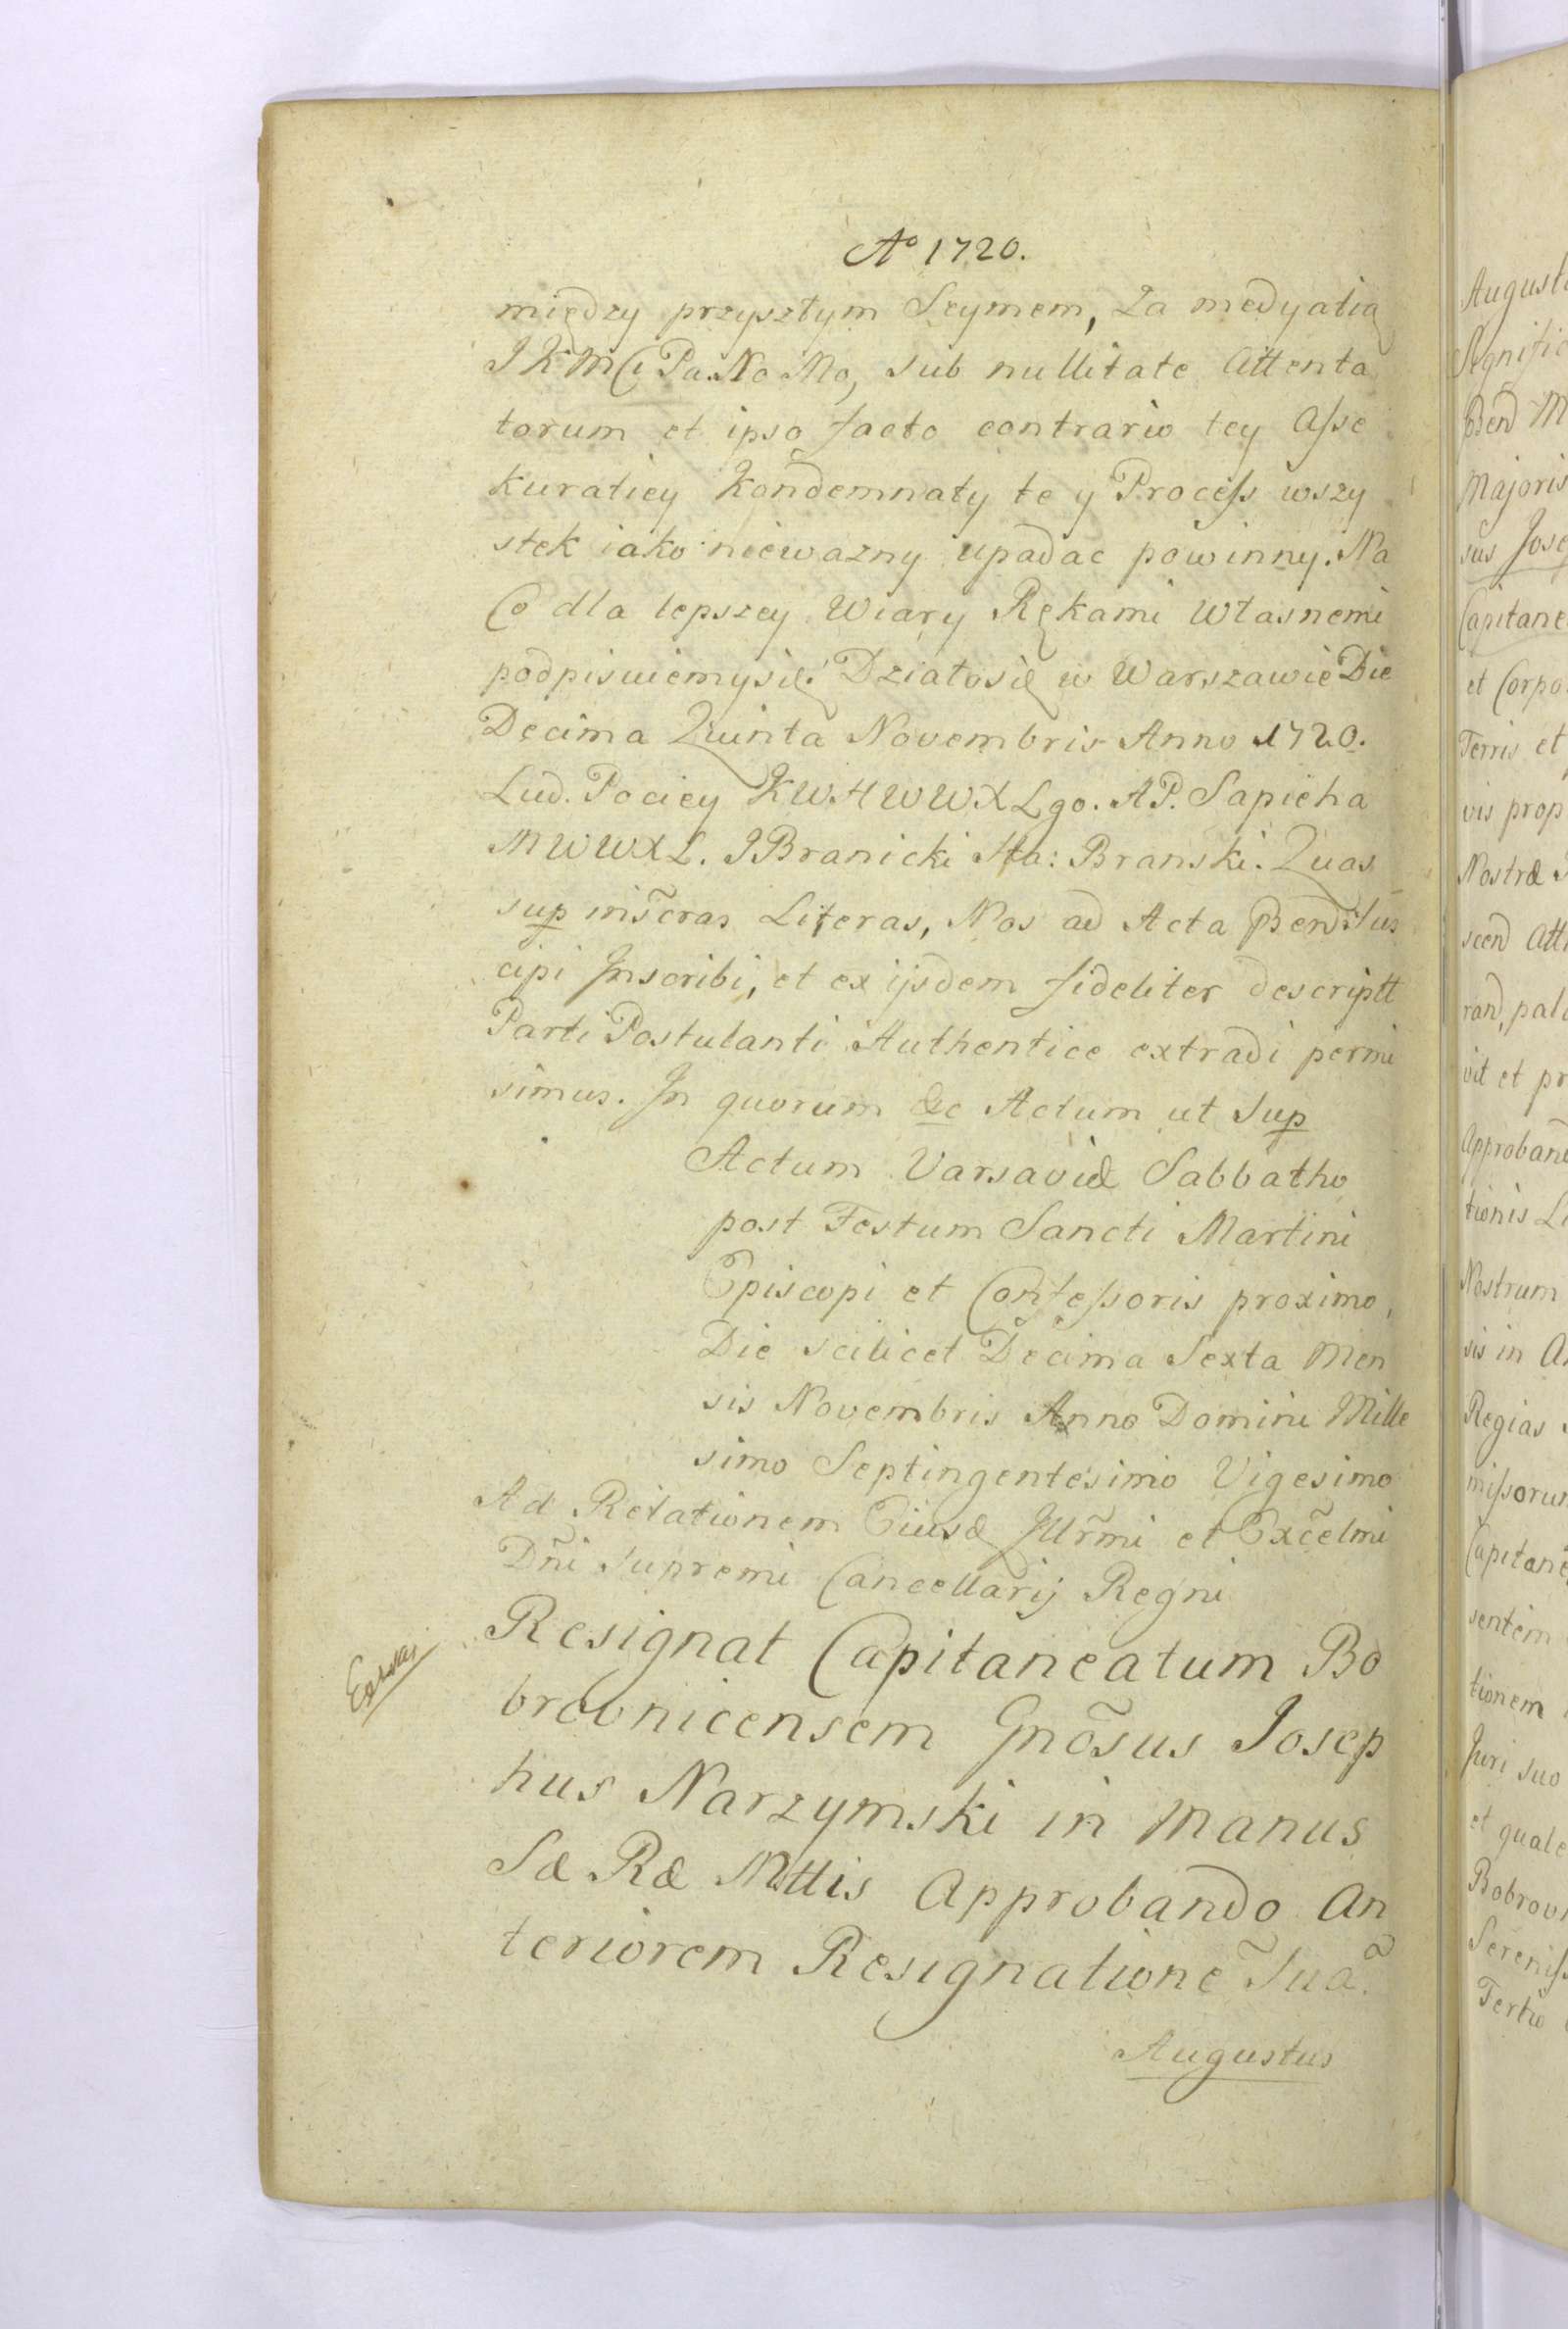 Aº 1720.
między przyszłym Seymem, Za medyatią
J K M Ci Pa. No Mo, sub nullitate Attenta
torum et ipso facto contrario tey Asse
kuratiey Kondemnaty te y Process wszy
stek iako nieważny upadac powinny. Na
Co dla lepszey Wiary Rękami Własnemi
podpisuiemysię. Działosię w Warszawie Die
Decima Quinta Novembris Anno 1720.
Lud. Pociey K W H W W X L go. A P. Sapieha
M W W X L. J Branicki Sta: Branski. Quas
sup insc̃ras Literas, Nos ad Acta p̃end Sus
cipi Inscribi, et ex ijsdem fideliter descriptt
Parti Postulanti Authentice extradi permi
simus. In quorum &c Actum ut Sup
Actum Varsaviæ Sabbatho
post Festum Sancti Martini
Episcopi et Confessoris proximo,
Die scilicet Decima Sexta Men
sis Novembris Anno Domini Mille
simo Septingentesimo Vigesimo
Ad Relationem Eiusd Illr̃mi et Exc̃elmi
Dñi Supremi Cancellarij Regni
Resignat Capitaneatum Bo
brovnicensem Gnõsus Josep
hus Narzymski in Manus
Sæ Ræ Mttis Approbando An
teriorem Resignationẽ Suã.
Augustus
August
Signific
p̃end M
Majoris
sus Josep
Capitane
et Corpo
Terris et
vis prop
Nostræ
scend Att
rand, pal
vit et pr
Approband
tionis Li
Nostrum
sis in A
Regias
missorum
Capitane
sentem
tionem
Juri suo
et quale
Bobrovn
Sereniss
Tertio